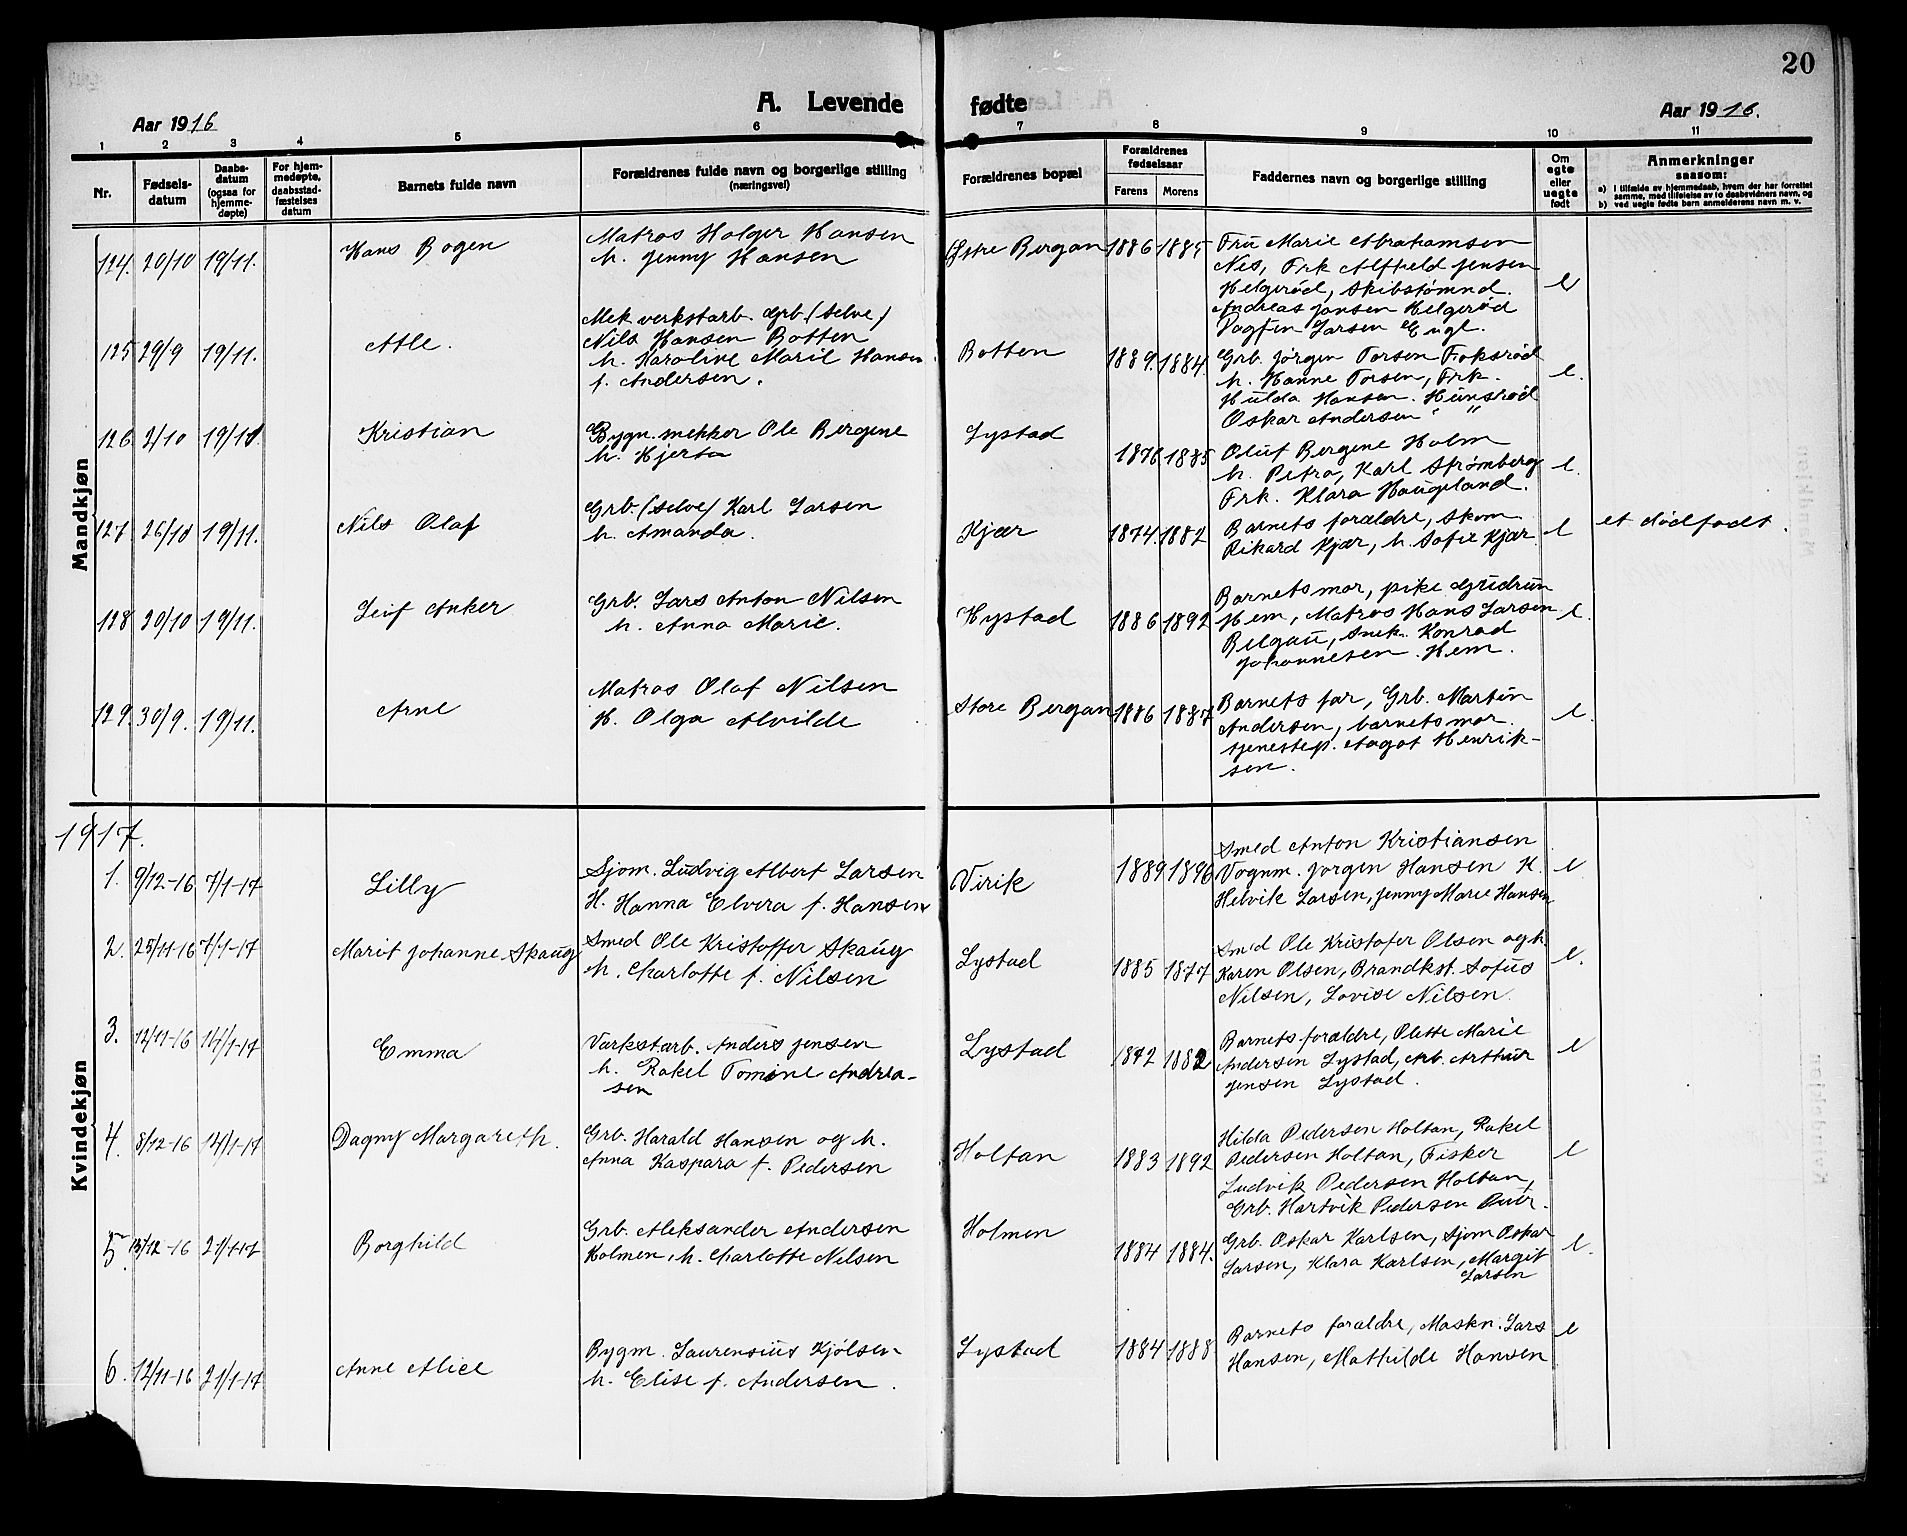 20
A. Levende fødte
Aar 1916
Aar 1916.
1 2 3 4 5 6 7 8 9 10 11
Nr.
Fødsels-
datum
Daabs-
datum
(ogsaa for
hjemme-
døpte)
For hjem-
medøpte,
daabsstad-
fæstelses
datum
Barnets fulde navn
Forældrenes fulde navn og borgerlige stilling
(næringsvei)
Forældrenes bopæl
Forældrenes
fødselsaar
Farens Morens
Faddernes navn og borgerlige stilling
Om
egte
eller
uegte
født
Anmerkninger
saasom:
a) I tilfælde av hjemmedaab, hvem der har forrettet
samme, med tilføielse av to daabsvidners navn, og
b) ved uegte fødte børn anmelderens navn m. v.
Mandkjøn
124. 20/10 19/11. Hans Bogen
Matros Holger Hansen
h. Jenny Hansen
Østre Bergan 1886 1885
Fru Marie Abrahamsen
Nes, Frk Alfhild Jensen
Helgerød, Skibstømmd.
Andreas Jansen Helgerød
Dagfin Larsen Engl.
e
125 29/9 19/11. Atle.
Mek verkstarb. Grb. (selve)
Nils Hansen Botten
h. Karoline Marie Hansen
f. Andersen.
Botten 1889. 1884.
Grb. Jørgen Torsen Foksrød
h. Hanne Torsen, Frk.
Hulda Hansen. Hunsrød
Oskar Andersen " "
e.
126 2/10 19/11. Kristian
Bygn. snekker Ole Bergene
h. Hjerta
Lystad 1876 1885
Oluf Bergene Holm
h. Petra, Karl Strømberg
Frk. Klara Haugeland.
e.
127. 26/10 19/11. Nils Olaf
Grb. (selve) Karl Larsen
h. Amanda.
Kjær 1874. 1882
Barnets forældre, Skom
Rikard Kjær, h. Sofie Kjær
e et dødfødt.
128 20/10 19/11. Leif Anker
Grb. Lars Anton Nilsen
h. Anna Marie.
Hystad 1886 1892
Barnets mor, pike Gudrun
Hem, Matros Hans Larsen
Belgau, Snek. Konrad
Johannesen. Hem.
e.
129. 30/9. 19/11. Arne
Matros Olaf Nilsen
H. Olga Alvilde
Store Bergan 1886 1887
Barnets far, Grb. Martin
Andersen, barnets mor.
tjenestep. Aagot Henrik-
sen.
e.
1917.
Kvindekjøn
1. 9/12-16 7/1-17 Lilly
Sjom. Ludvig Albert Larsen
H. Hanna Elvira f. Hansen
Virik 1889 1896
Smed Anton Kristiansen
Vognm. Jørgen Hansen H.
Helvik Larsen, Jenny Marie Hansen
e.
2. 25/11-16 7/1-17 Marit Johanne Skaug
Smed Ole Kristoffer Skaug
h. Charlotte f. Nilsen
Lystad 1885 1877
Smed Ole Kristofer Olsen og h.
Karen Olsen, Brandkst. Sofus
Nilsen, Lovise Nilsen.
e.
3. 12/11-16 14/1-17 Emma
Verkstarb. Anders Jensen
h. Rakel Tomine Andrea-
sen
Lystad 1872 1882
Barnets forældre, Olette Marie
Andersen Lystad, Arb. Arthur
Jensen Lystad.
e
4. 8/12-16 14/1-17 Dagny Margareth.
Grb. Harald Hansen og h.
Anna Kaspara f. Pedersen
Holtan 1883 1892
Hilda Pedersen Holtan, Rakel
Pedersen Holtan, Fisker
Ludvik Pedersen Holtan,
Grb. Hartvik Pedersen
e
5. 13/12-16 21/1-17 Borghild
Grb. Aleksander Andersen
Holmen, h. Charlotte Nilsen
Holmen 1884 1884.
Grb. Oskar Karlsen, Sjom Oskar
Larsen, Klara Karlsen, Margit
Larsen
e.
6. 12/11-16 21/1-17 Anne Alice
Bygm. Laurensius Kjølsen
h. Elise f. Andersen.
Lystad 1884 1888
Barnets forældre, Maskn. Lars
Hansen, Mathilde Hansen
e